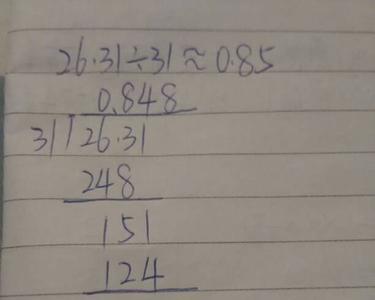 26.31÷31≈0.85
0.848
31 26.31
248
151
124